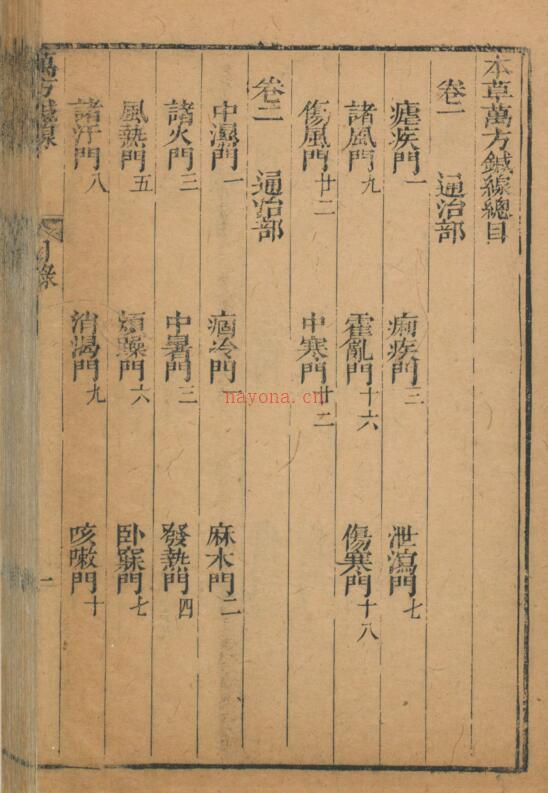 本草萬方鍼線總目
卷一　通治部
瘧疾門一　痢疾門三　泄瀉門七
諸風門九　霍亂門十六　傷寒門十八
傷風門廿二　中寒門廿二
卷二　通治部
中濕門一　痼冷門一　麻木門二
諸火門三　中暑門三　發熱門四
風熱門五　煩躁門六　卧寐門七
諸汗門八　消渴門九　咳嗽門十
萬方鍼線　目錄　一
nayona.cn